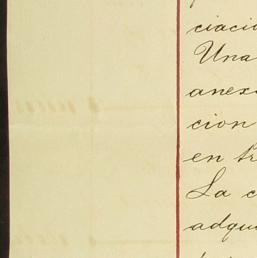 ciació
Una
anex
cion
en tr
La c
adqu